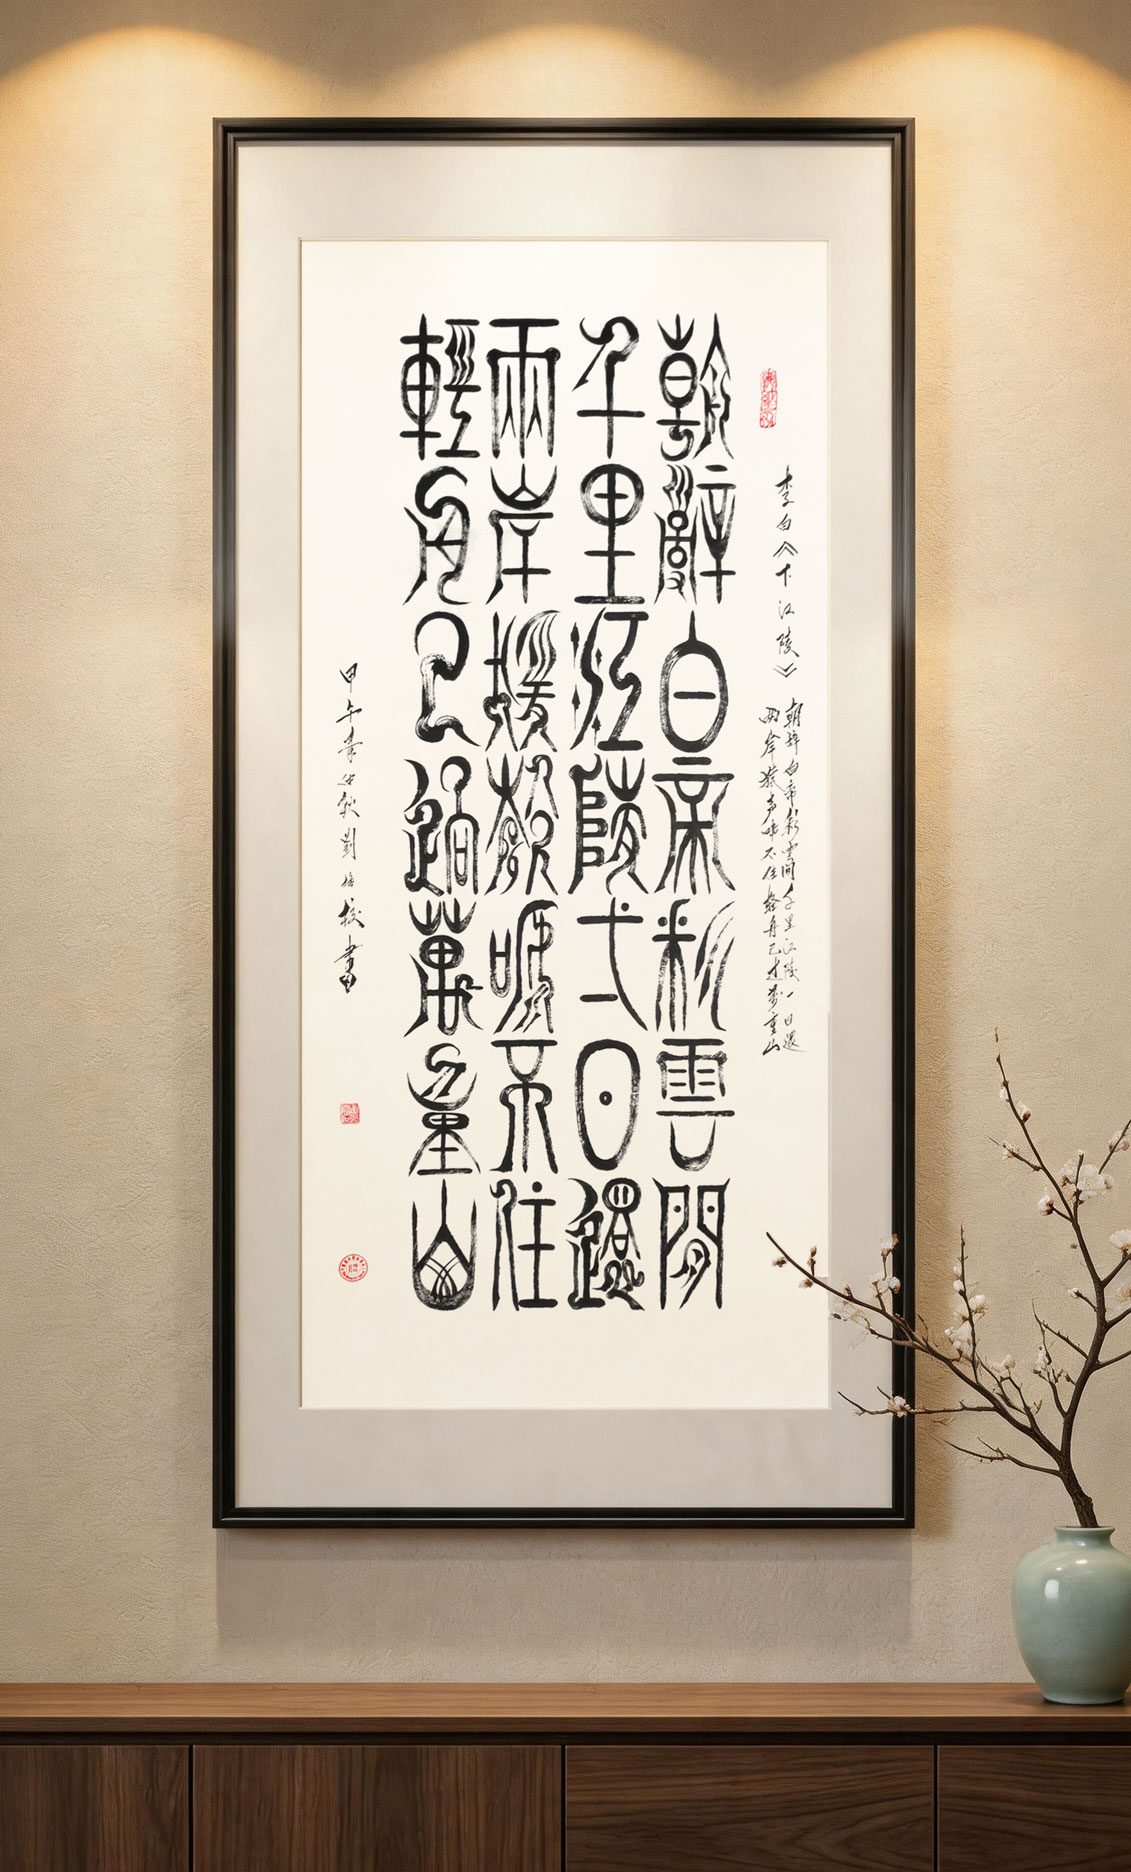 李白《下江陵》
朝辞白帝彩雲間千里江陵一日還
两岸猿声啼不住轻舟已过万重山
朝辭白帝彩雲間
千里江陵弌日還
兩岸猨聲啼不住
輕舟已過萬重山
甲午 劉 書